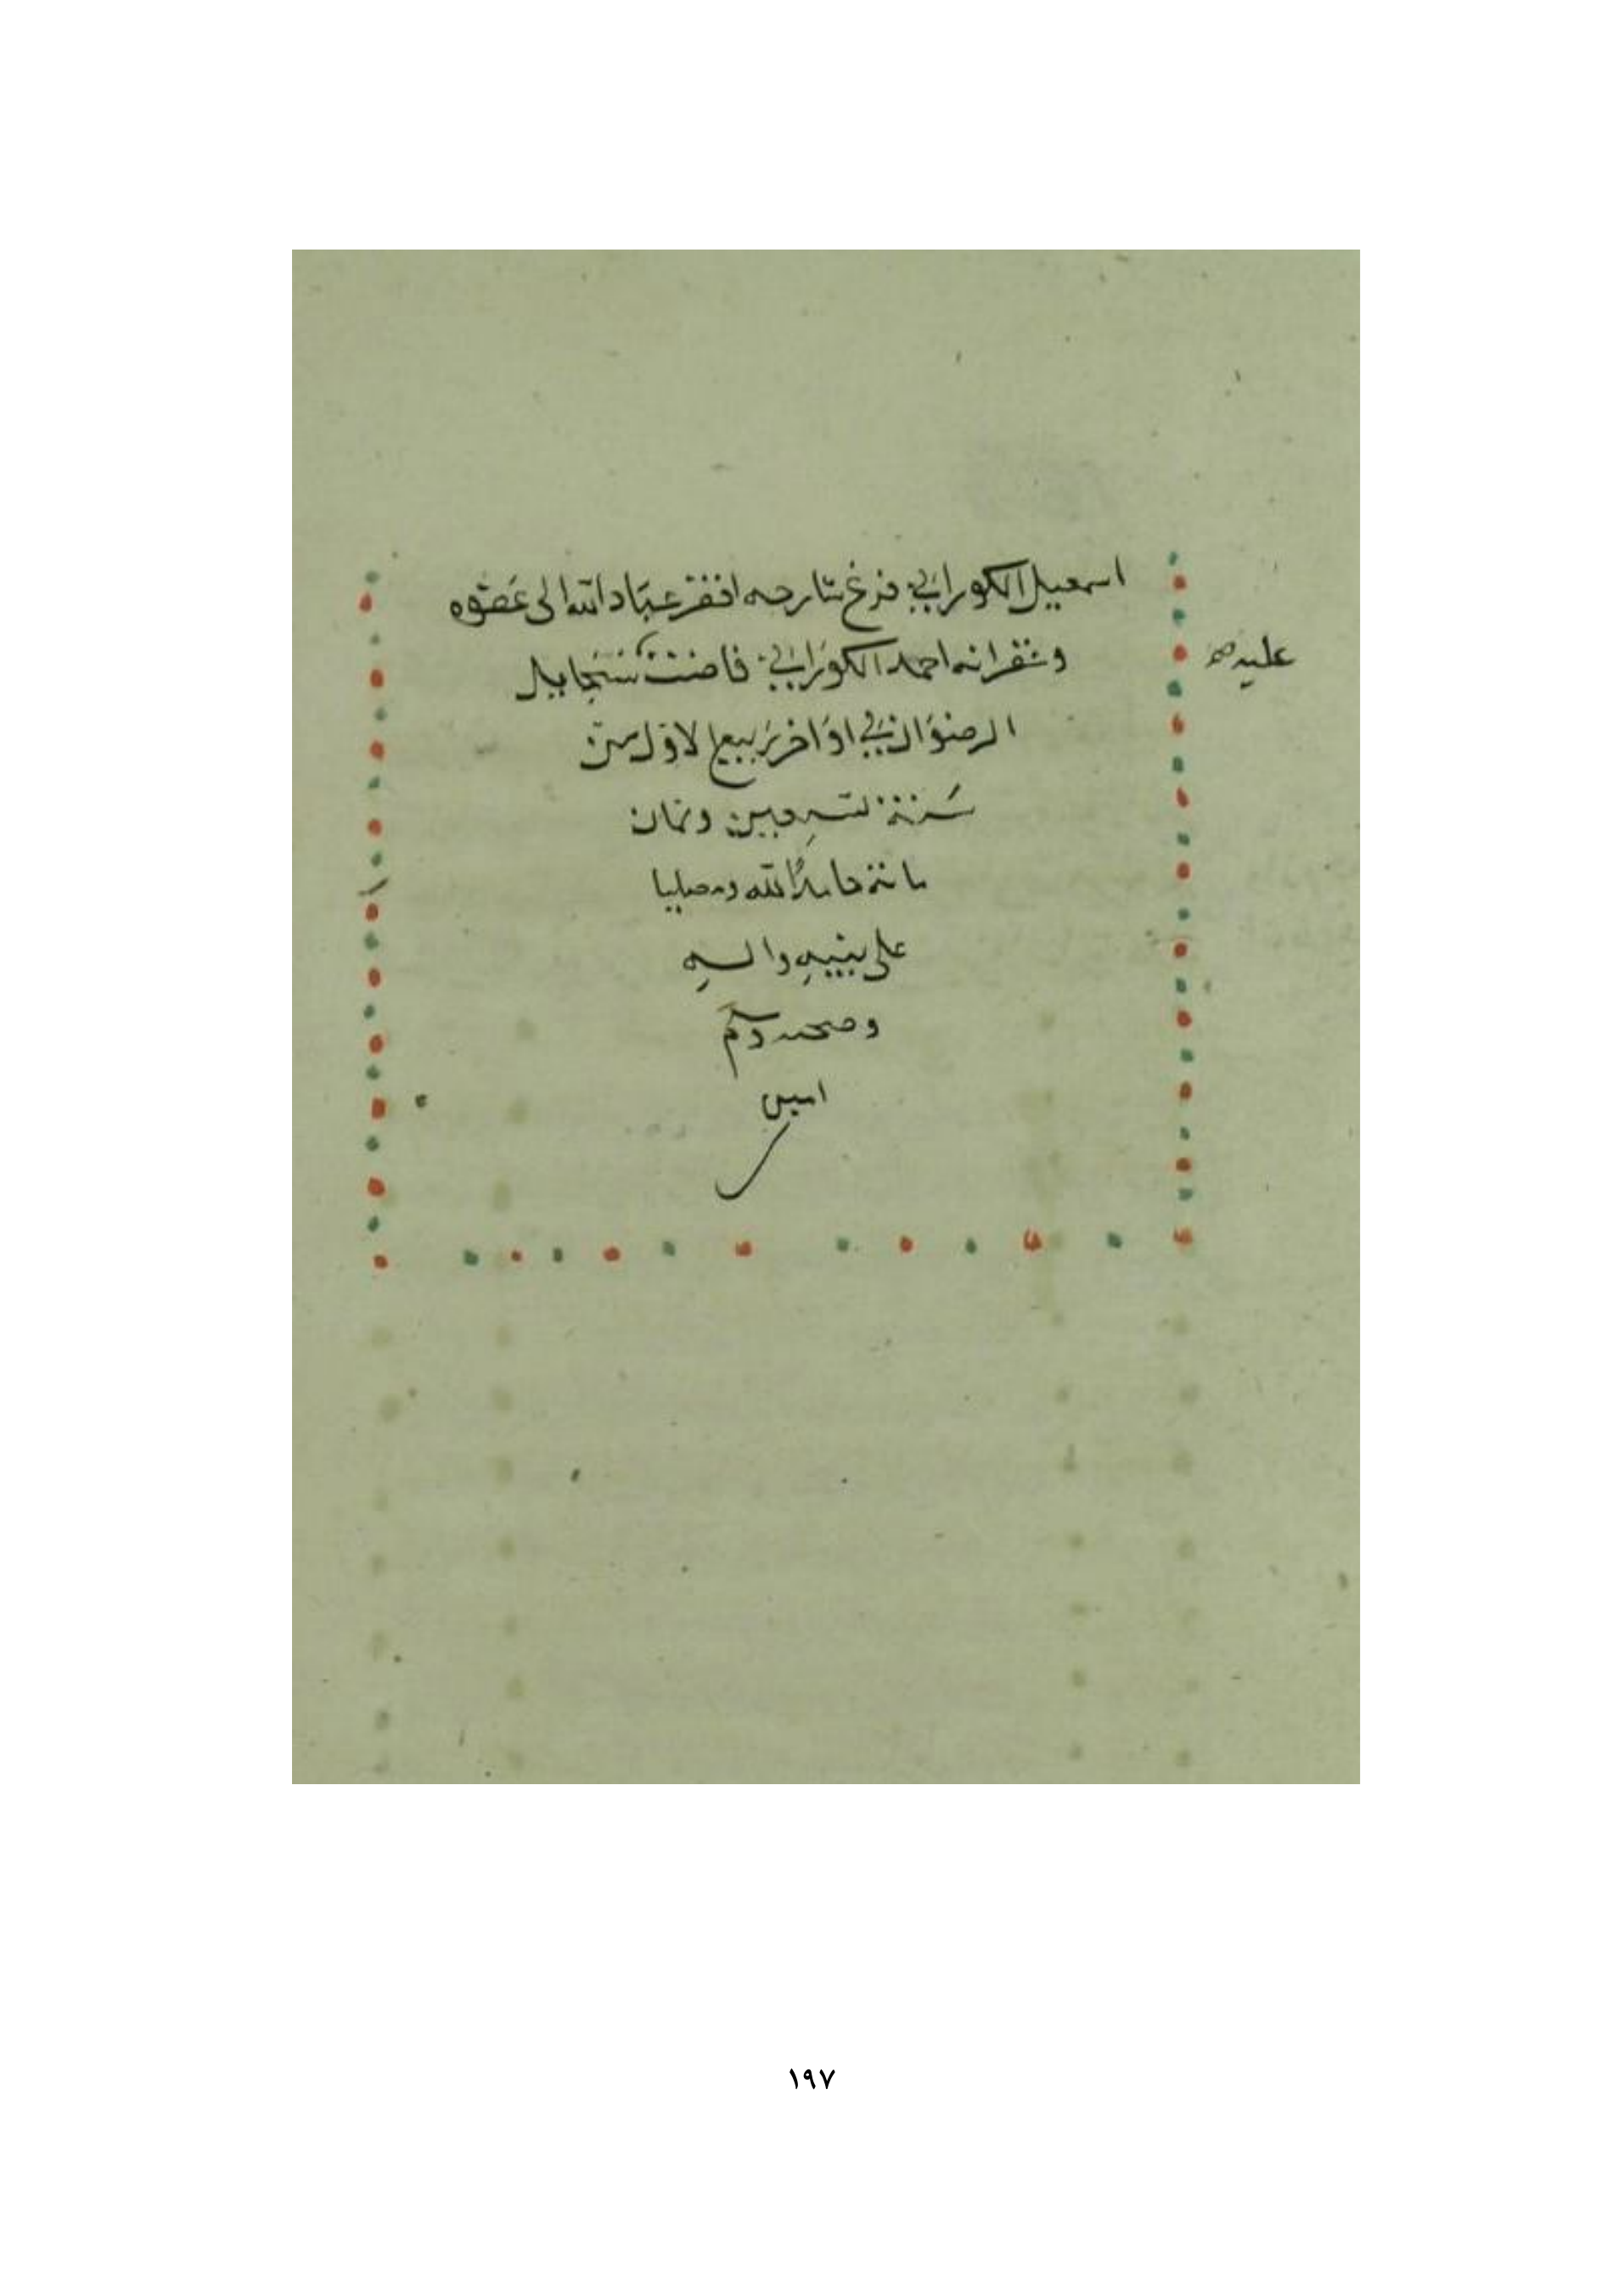 اسمعيل الكوراني فرغ شارحه افقر عباد الله الى عفوه
وغفرانه احمد الكوراني فاضت سجابيل
عليه
الرضوان في اواخر ربيع الاول من
سنة تسعين وثمان
مائة حامدًا لله ومصليا
على نبيه واله
وصحبه وسلم
امين
١٩٧